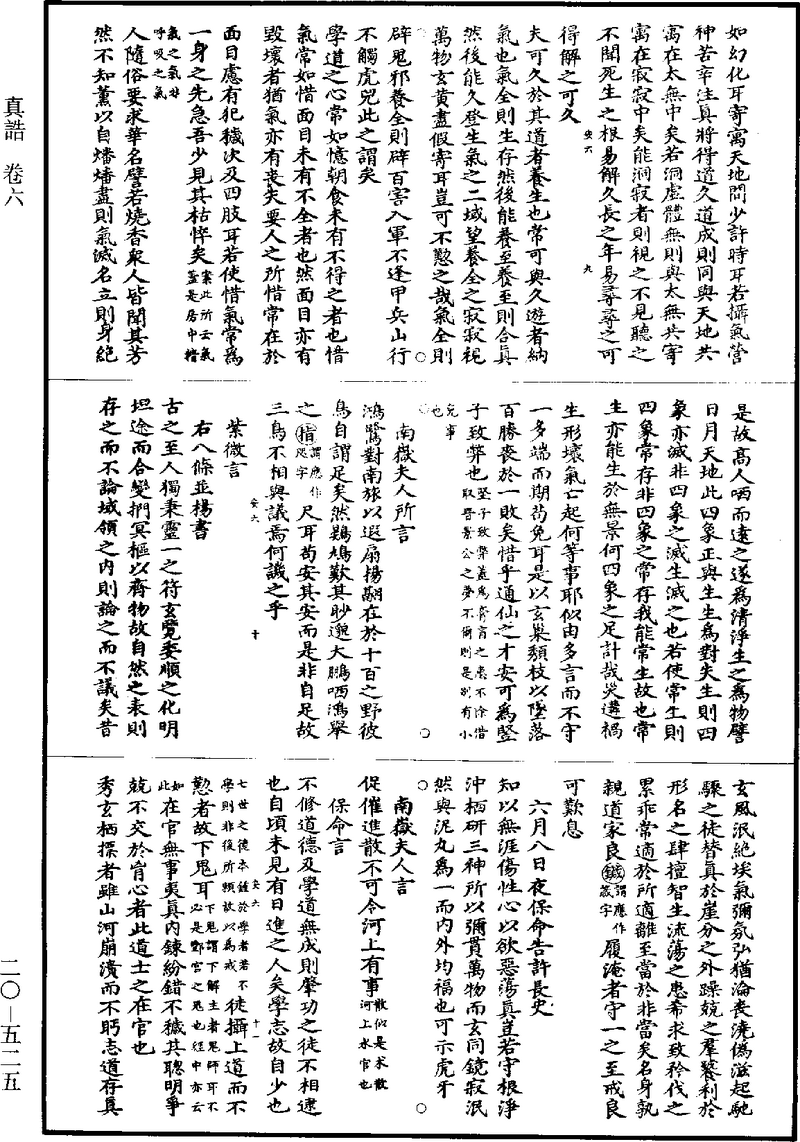 真誥　卷六
如幻化耳寄寓天地間少許時耳若攝氣營
神苦辛注真將得道久道成則同與天地共
寓在太無中矣若洞虛體無則與太無共寄
寓在寂寂中矣能洞寂者則視之不見聽之
不聞死生之根易解久長之年易尋尋之可
得解之可久
安六　九
夫可久於其道者養生也常可與久遊者納
氣也氣全則生存然後能養至養至則合真
然後能久登生氣之二域望養全之寂寂視
萬物玄黃盡假寄耳豈可不懃之哉氣全則
辟鬼邪養全則辟百害入軍不逢甲兵山行
不觸虎兕此之謂矣
學道之心常如憶朝食未有不得之者也惜
氣常如惜面目未有不全者也然面目亦有
毀壞者猶氣亦有喪失要人之所惜常在於
面目慮有犯穢次及四肢耳若使惜氣常為
一身之先急吾少見其枯悴矣案此所云氣蓋是居中精
氣之氣非呼吸之氣
人隨俗要求華名譬若燒香衆人皆聞其芳
然不知薰以自燔燔盡則氣滅名立則身絕
是故高人哂而遠之遂為清淨生之為物譬
日月天地此四象正與生生為對失生則四
象亦滅非四象之滅生滅之也若使常生則
四象常存非四象之常存我能常生故也常
生亦能生於無景何四象之足計哉災遘禍
生形壞氣亡起何等事耶似由多言而不守
一多端而期苟免耳是以玄巢頹枝以墜落
百勝喪於一敗矣惜乎通仙之才安可為豎
子致弊也豎子致弊蓋為膏肓之患不除借取晉景公之夢不爾則是別有小
兒事也
南嶽夫人所言
鴻鷺對南旅以遐扇揚翮在於十百之野彼
鳥自謂足矣然鷃鳩歎其眇邈大鵬哂鴻舉
之㨋謂應作咫字尺耳苟安其安而是非自足故
三鳥不相與議焉何譏之乎
紫微言
安六　十
右八條並楊書
古之至人獨秉靈一之符玄覽委順之化明
坦途而合變捫冥樞以齊物故自然之表則
存之而不論域領之內則論之而不議矣昔
玄風泯絕埃氣彌氛弘猶淪喪澆偽滋起馳
驟之徒替真於崖分之外躁競之羣繫利於
形名之肆擅智生流蕩之患希求致矜伐之
累乖常適於所適離至當於非當矣名身孰
親道家良䤴謂應作箴字履淹者守一之至戒良
可歎息
六月八日夜保命告許長史
知以無涯傷性心以欲惡蕩真豈若守根淨
沖栖研三神所以彌貫萬物而玄同鏡寂泯
然與泥丸為一而內外均福也可示虎牙
南嶽夫人言
促催進散不可令河上有事散似是求散河上水官也
保命言
不修道德及學道無成則肇功之徒不相逮
也自頃未見有日進之人矣學志故自少也
七世之德本鍾於學者若不學則非後所願故以為戒
安六　十一
徒攝上道而不
懃者故下鬼耳下鬼謂下解主者鬼師耳不必是酆宮之鬼也經中亦云
如此
在官無事夷真內鍊紛錯不穢其聰明爭
競不交於肓心者此道士之在官也
秀玄栖標者雖山河崩潰而不眄志道存真
二〇—五二五